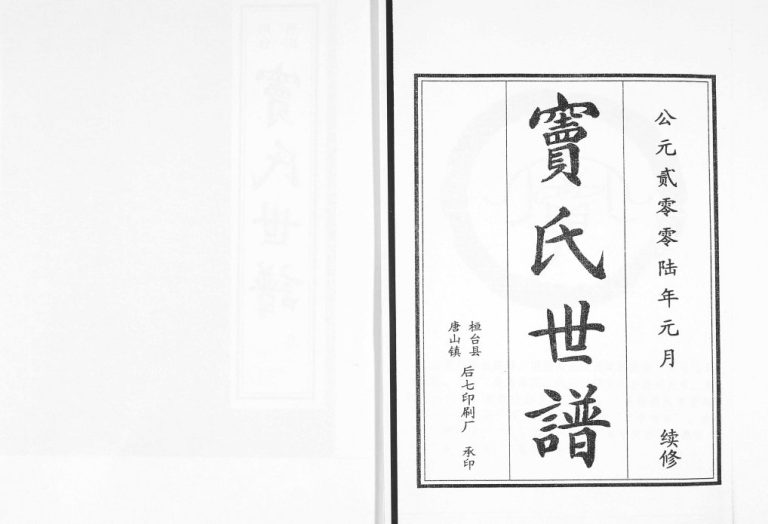 公元贰零零陆年元月 续修
竇氏世譜
桓台县
唐山镇
后七印刷厂 承印